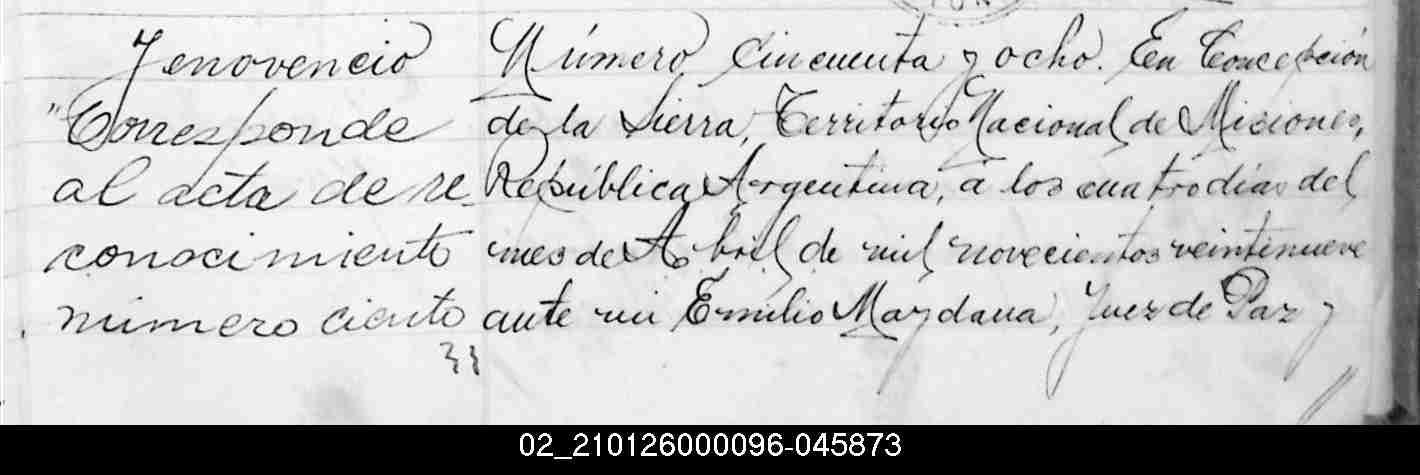 Jenovencio
"Corresponde
al acta de re-
conocimiento
número ciento
Número Cincuenta y ocho. En Concepción
de la Sierra, Territorio Nacional de Misiones,
República Argentina, a los cuatro dias del
mes de Abril de mil novecientos veintinueve
ante mi Emilio Maydana, Juez de Paz y
02_210126000096-045873